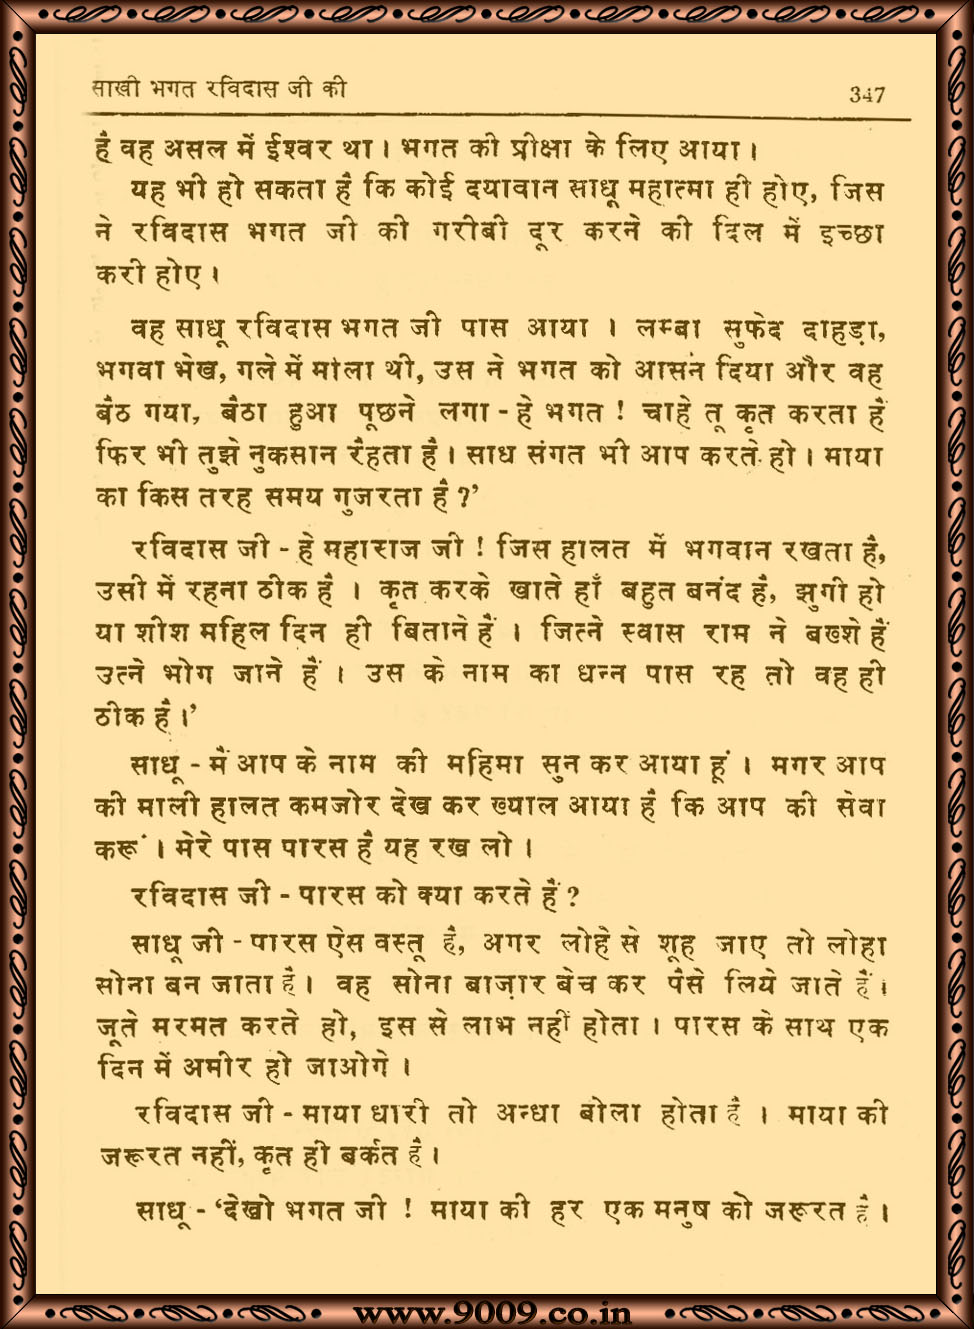 साखी भगत रविदास जी की
347
है वह असल में ईश्वर था। भगत की प्रीक्षा के लिए आया।
यह भी हो सकता है कि कोई दयावान साधू महात्मा ही होए, जिस
ने रविदास भगत जी की गरीबी दूर करने की दिल में इच्छा
करी होए।
वह साधू रविदास भगत जी पास आया । लम्बा सुफेद दाहड़ा,
भगवा भेख, गले में माला थी, उस ने भगत को आसन दिया और वह
बैठ गया, बैठा हुआ पूछने लगा - हे भगत ! चाहे तू कृत करता है
फिर भी तुझे नुकसान रैहता है। साध संगत भी आप करते हो। माया
का किस तरह समय गुजरता है ?’
रविदास जी - हे महाराज जी ! जिस हालत में भगवान रखता है,
उसी में रहना ठीक है । कृत करके खाते हाँ बहुत बनंद है, झुगी हो
या शीश महिल दिन ही बिताने हैं । जित्ने स्वास राम ने बख्शे हैं
उत्ने भोग जाने हैं । उस के नाम का धन्न पास रह तो वह ही
ठीक है।’
साधू - मैं आप के नाम की महिमा सुन कर आया हूं । मगर आप
की माली हालत कमजोर देख कर ख्याल आया है कि आप की सेवा
करूं । मेरे पास पारस है यह रख लो ।
रविदास जी - पारस को क्या करते हैं ?
साधू जी - पारस ऐस वस्तू है, अगर लोहे से शूह जाए तो लोहा
सोना बन जाता है। वह सोना बाज़ार बेच कर पैसे लिये जाते हैं।
जूते मरमत करते हो, इस से लाभ नहीं होता । पारस के साथ एक
दिन में अमीर हो जाओगे ।
रविदास जी - माया धारी तो अन्धा बोला होता है । माया की
जरूरत नहीं, कृत ही बर्कत है।
साधू - ‘देखो भगत जी ! माया की हर एक मनुष को जरूरत है ।
www.9009.co.in